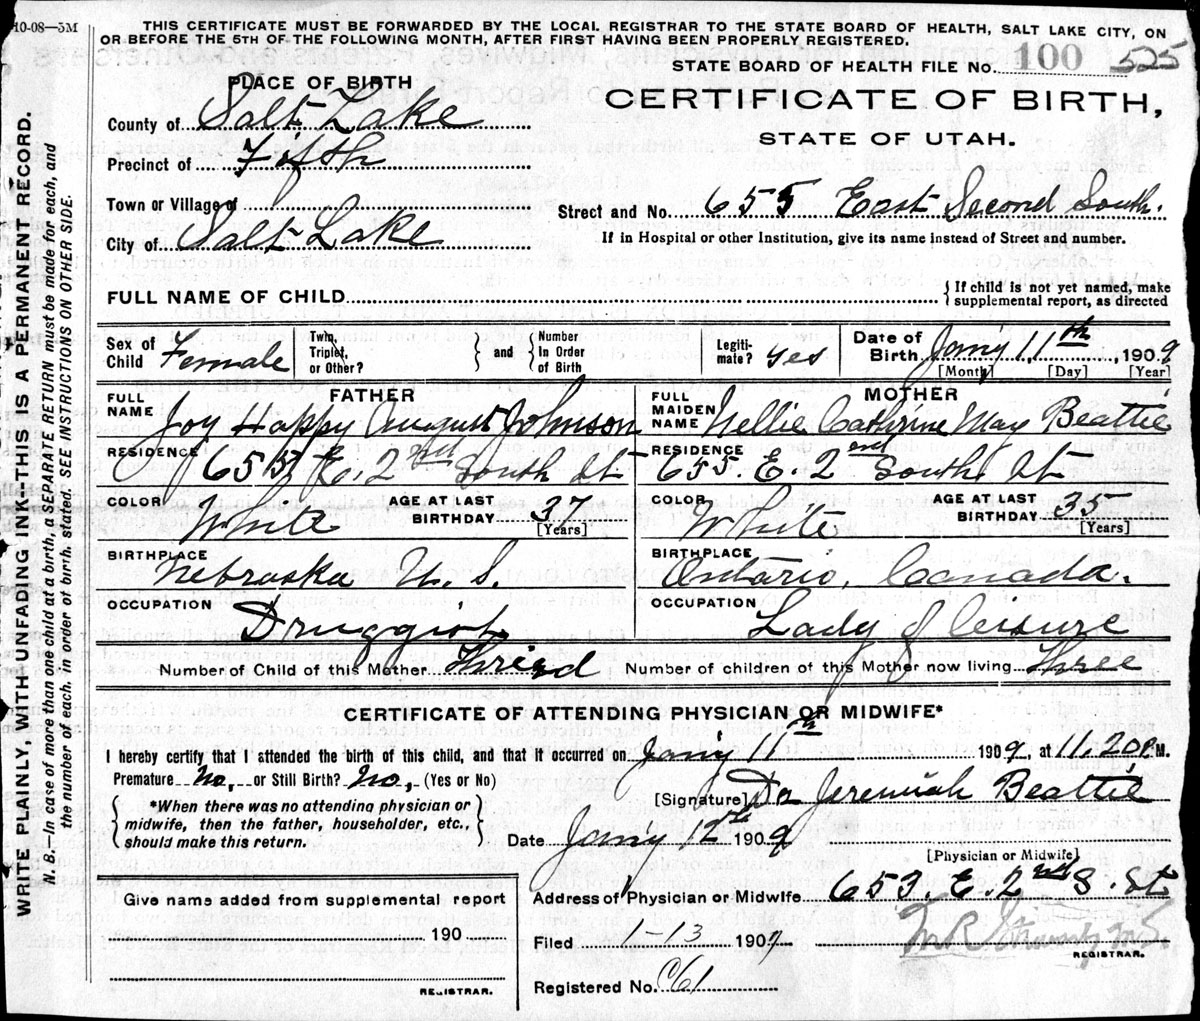 10-08—3M
THIS CERTIFICATE MUST BE FORWARDED BY THE LOCAL REGISTRAR TO THE STATE BOARD OF HEALTH, SALT LAKE CITY, ON
OR BEFORE THE 5TH OF THE FOLLOWING MONTH, AFTER FIRST HAVING BEEN PROPERLY REGISTERED.
STATE BOARD OF HEALTH FILE No. 100 525
PLACE OF BIRTH
CERTIFICATE OF BIRTH,
STATE OF UTAH.
County of Salt Lake
Precinct of Fifth
Town or Village of
Street and No. 655 East Second South.
City of Salt Lake
If in Hospital or other Institution, give its name instead of Street and number.
FULL NAME OF CHILD
{ If child is not yet named, make
supplemental report, as directed
Sex of Child Female
Twin, Triplet, or Other? } and { Number In Order of Birth
Legiti-mate? yes
Date of Birth Jany 11th, 1909
[Month] [Day] [Year]
FATHER
FULL NAME Joy Happy August Johnson
MOTHER
FULL MAIDEN NAME Nellie Cathrine May Beattie
RESIDENCE 655 E. 2nd South St
RESIDENCE 655. E. 2nd South St
COLOR White
AGE AT LAST BIRTHDAY 37 [Years]
COLOR White
AGE AT LAST BIRTHDAY 35 [Years]
BIRTHPLACE Nebraska U. S.
BIRTHPLACE Ontario, Canada.
OCCUPATION Druggist
OCCUPATION Lady of leisure
Number of Child of this Mother Third
Number of children of this Mother now living Three
CERTIFICATE OF ATTENDING PHYSICIAN OR MIDWIFE*
I hereby certify that I attended the birth of this child, and that it occurred on Jany 11th 1909, at 11,20 P.M.
Premature No, or Still Birth? No, (Yes or No)
{ *When there was no attending physician or
midwife, then the father, householder, etc.,
should make this return. }
[Signature] Dr Jeremiah Beattie
Date Jany 12th 1909
[Physician or Midwife]
Give name added from supplemental report
190
REGISTRAR.
Address of Physician or Midwife 653 E. 2nd S. St
Filed 1-13 1909
REGISTRAR.
Registered No. C61
WRITE PLAINLY, WITH UNFADING INK—THIS IS A PERMANENT RECORD.
N. B.—In case of more than one child at a birth, a SEPARATE RETURN must be made for each, and
the number of each, in order of birth, stated. SEE INSTRUCTIONS ON OTHER SIDE.